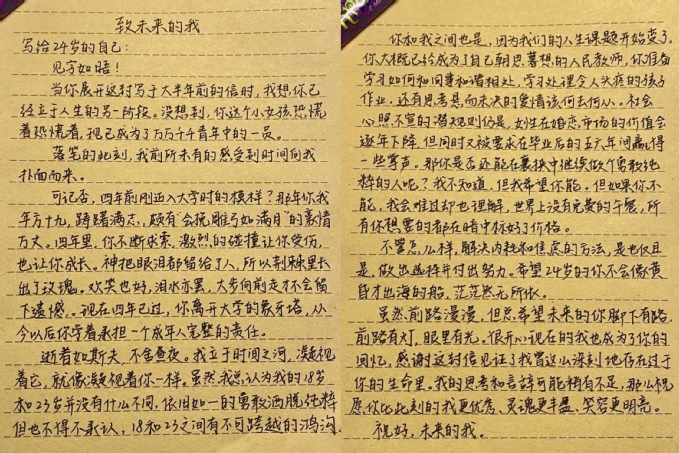 致未来的我
写给24岁的自己:
见字如晤!
当你展开这封写于大半年前的信时,我想你已
经立于人生的另一阶段。没想到,你这个小女孩,恐慌
着恐慌着,现已成为了万万千千青年中的一员。
落笔的此刻,我前所未有的感受到时间向我
扑面而来。
可记否,四年前刚迈入大学时的模样?那年你我
年方十九,踌躇满志,颇有“会挽雕弓如满月”的豪情
万丈。四年里,你不断求索,激烈的碰撞让你受伤,
也让你成长。神把眼泪都留给了人,所以荆棘里长
出了玫瑰。欢笑也好,泪水亦罢,大步向前走才不会留
下遗憾。现在四年已过,你离开大学的象牙塔,从
今以后你学着承担一个成年人完整的责任。
逝者如斯夫,不舍昼夜。我立于时间之河,凝视
着它,就像凝视着你一样。虽然我总认为我的18岁
和23岁并没有什么不同,依旧如一的勇敢洒脱纯粹
但也不得不承认,18和23之间有不可跨越的鸿沟.
你和我之间也是,因为我们的人生课题开始变了.
你大概已经成为了自己朝思慕想的人民教师,你准备
学习如何和同事和谐相处,学习处理令人头疼的孩子
作业,还有思考悬而未决的爱情该何去何从。社会
心照不宣的潜规则仍是,女性在婚恋市场的价值会
逐年下降,但同时又被要求在毕业后的五六年间赢得
一些掌声。那你是否还能在裹挟中继续做个勇敢纯
粹的人呢?我不知道,但我希望你能。但如果你不
能,我会难过却也理解,世界上没有免费的午餐,所
有你想要的都在暗中标好了价格。
不管怎么样,解决内耗和焦虑的方法,是也仅且
是,做出选择并付出努力。希望24岁的你不会像黄
昏才出海的船,茫茫然无所依。
虽然前路漫漫,但总希望未来的你脚下有路,
前路有灯,眼里有光。很开心现在的我也成为了你的
回忆,感谢这封信见证了我曾这么深刻地存在过于
你的生命里。我的思考和言辞可能稍有不足,那么祝
愿你比此刻的我更优秀、灵魂更丰盈、笑容更明亮。
祝好,未来的我。